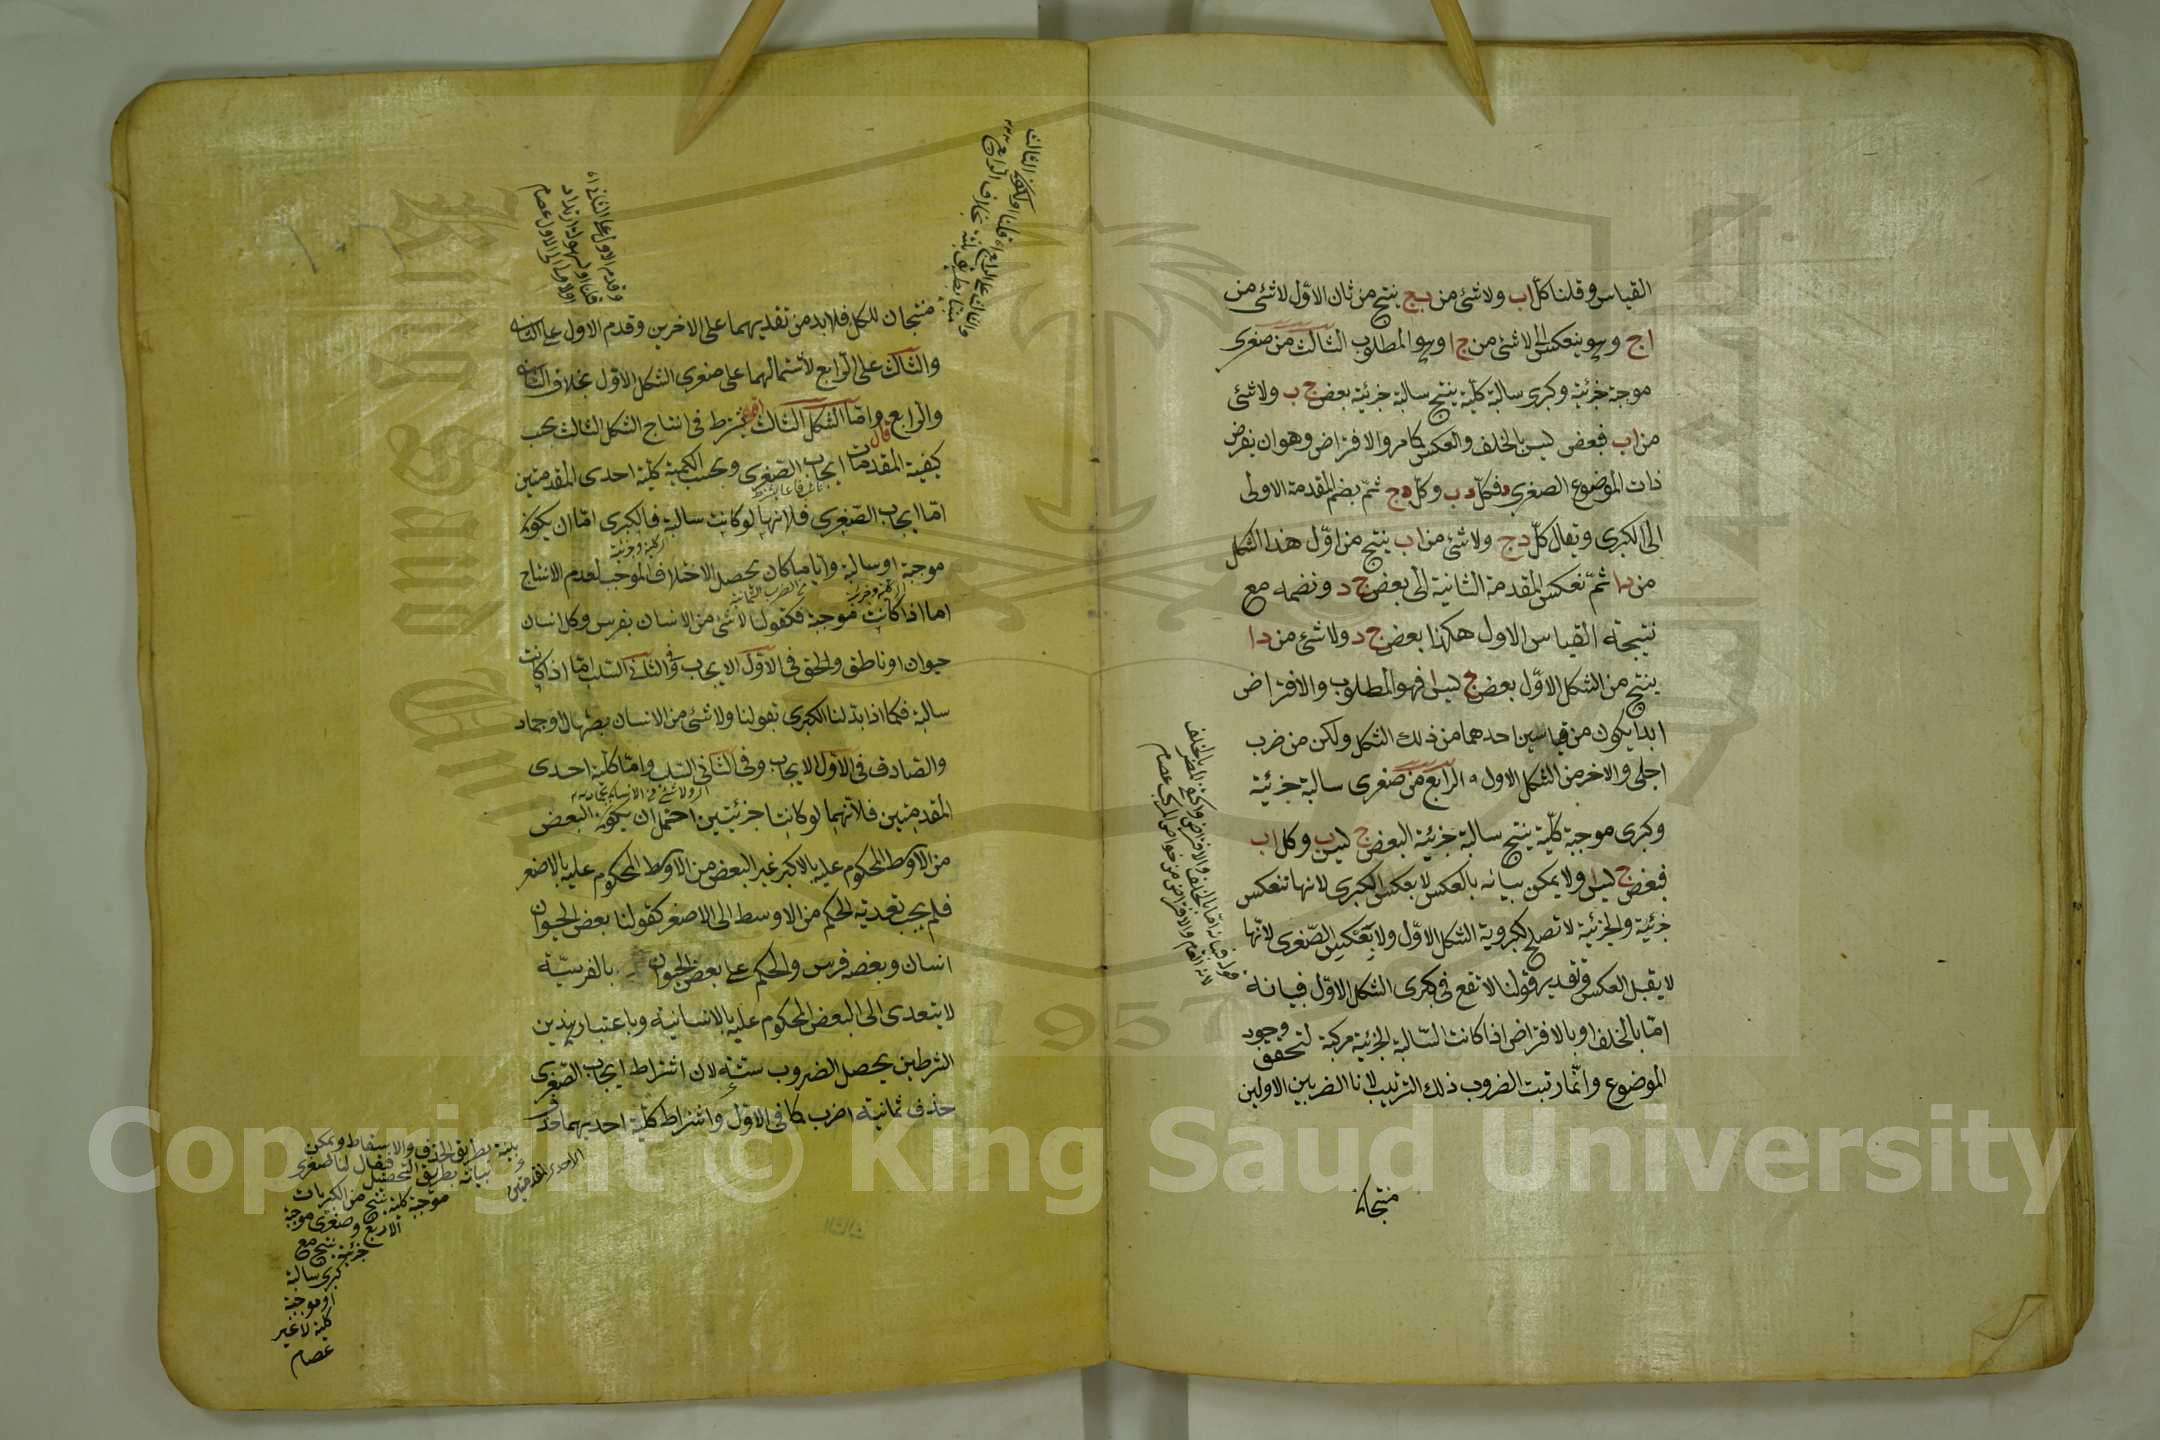 القياس وقلنا كلّ اب ولا شئ من بج ينتج من ثان الاوّل لا شئ من
اج وهو ينعكس الى لا شئ من جا وهو المطلوب الثالث من صغرى
موجبة جزئية وكبرى سالبة كلّية ينتج سالبة جزئية بعض ج ب ولا شئ
من اب فبعض ليس بالخلف والعكس كما مر والافتراض وهو ان نفرض
ذات الموضوع الصغرى د فكلّ د ب وكلّ دج ثمّ يضم المقدمة الاولى
الى الكبرى ويقال كلّ دج ولا شئ من اب ينتج من اوّل هذا الشكل
من دا ثمّ نعكس المقدمة الثانية الى بعض ج د ونضمه مع
نتيجة القياس الاول هكذا بعض ج د ولا شئ من دا
ينتج من الشكل الاوّل بعض ج ليس ا فهو المطلوب والافتراض
ابدا يكون من قياسين احدهما من ذلك الشكل ولكن من ضرب
اجلى والاخر من الشكل الاول الرابع من صغرى سالبة جزئية
وكبرى موجبة كلّية ينتج سالبة جزئية البعض ج ليس ب وكل اب
فبعض ج ليس ا ولا يمكن بيانه بالعكس لا بعكس الكبرى لانها تنعكس
جزئية والجزئية لا تصلح لكبروية الشكل الاوّل ولا بعكس الصّغرى لانّها
لا يقبل العكس وتقدير قولنا لا تقع فى كبرى الشكل الاوّل فبيانه
امّا بالخلف او بالافتراض اذا كانت السّالبة الجزئية مركبة لتحقق وجود
الموضوع وانّما رتبت الضروب ذلك الترتيب لانا الضربين الاولين
منتجان
منتجان للكل فلا بد من تقديمهما على الاخرين وقدم الاول على الثانى
والثالث على الرابع لاشتمالهما على صغرى الشكل الاوّل بخلاف الثانى
والرابع قال وامّا الشكل الثالث اقول يشترط فى انتاج الشكل الثالث بحسب
كيفية المقدمات ايجاب الصّغرى وبحسب الكمية كلية احدى المقدمتين
امّا ايجاب الصّغرى فلانها لو كانت سالبة فالكبرى امّا ان يكون
موجبة او سالبة وايا ما كان يحصل الاختلاف الموجب لعدم الانتاج
اما اذا كانت موجبة فكقولنا لا شئ من الانسان بفرس وكل انسان
حيوان او ناطق والحق فى الاوّل الايجاب وفى الثانى السّلب امّا اذا كانت
سالبة فكما اذا بدّلنا الكبرى بقولنا ولا شئ من الانسان بصهال او جماد
والصّادق فى الاوّل الايجاب وفى الثّانى السّلب وامّا كلّية احدى
المقدمتين فلانّهما لو كانتا جزئيتين احتمل ان يكون البعض
من الاوسط المحكوم عليه بالاكبر غير البعض من الاوسط المحكوم عليه بالاصغر
فلم يجب تعدية الحكم من الاوسط الى الاصغر كقولنا بعض الحيوان
انسان وبعضه فرس والحكم على بعض الحيوان بالفرسيّة
لا يتعدى الى البعض المحكوم عليه بالانسانية وباعتبار هذين
الشرطين يحصل الضروب ستة لان اشتراط ايجاب الصّغرى
حذف ثمانية اضرب كما فى الاوّل واشتراط كلّية احديهما حذف
وقدم الاول على الثانى
والثالث على الرابع
اى احدى المقدمتين
بيانه بطريق التحصيل فيقال لنا صغرى
موجبة كلية ينتج من الكبريات
الاربع وصغرى موجبة
جزئية ينتج مع
كبرى سالبة
او موجبة
كلية لا غير
عصام
Copyright © King Saud University
1957